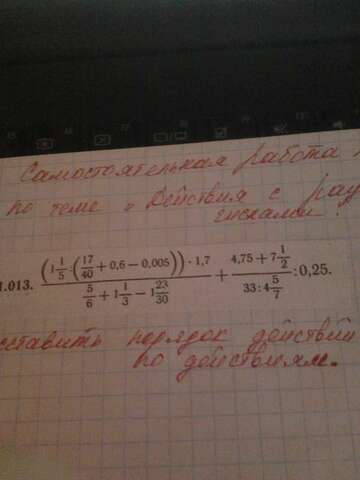 Самостоятельная работа
по теме „Действия с рац
числами".
1.013. \frac{\left(1\frac{1}{5}:\left(\frac{17}{40}+0,6-0,005\right)\right)\cdot 1,7}{\frac{5}{6}+1\frac{1}{3}-1\frac{23}{30}}+\frac{4,75+7\frac{1}{2}}{33:4\frac{5}{7}}:0,25.
ставить порядок действий
по действиям.